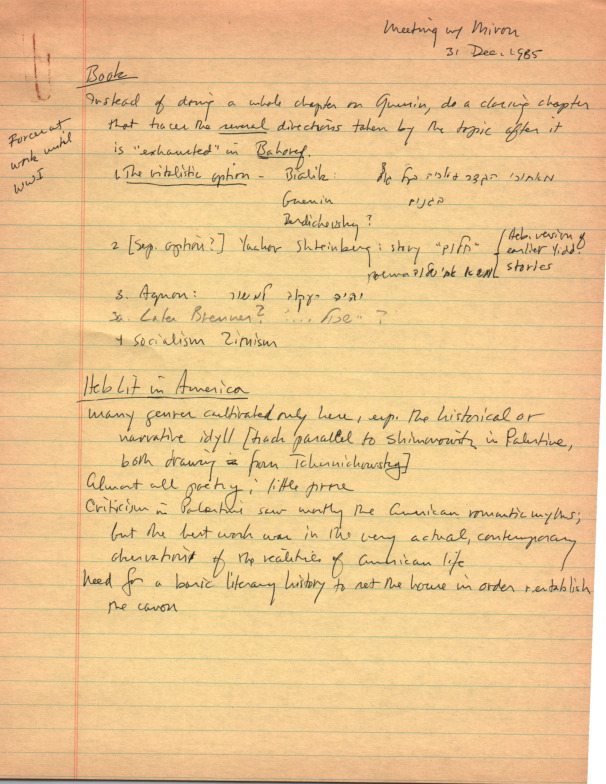 Meeting w/ Miron
31 Dec. 1985
Book
Instead of doing a whole chapter on Gnessin, do a closing chapter
that traces the several directions taken by the topic after it
is "exhausted" in Bahoref.
Forces at
work until
WWI
1. The vitalistic option - Bialik: מאחורי הגדר
Gnessin
Berdichevsky?
2 [Sep. option?] Yaakov Shteinberg: story
Heb. version of
earlier Yidd.
stories
3. Agnon: והיה העקוב למישור
3a. Later Brenner? ... שכול ?
4 Socialism Zionism
Heb Lit in America
Many genres cultivated only here, esp. the historical or
narrative idyll [track parallel to Shimonowitz in Palestine,
both drawing from Tchernichowsky]
Almost all poetry; little prose
Criticism in Palestine saw mostly the American romantic myths;
but the best work was in the very actual, contemporary
observations of the realities of American life
Need for a basic literary history to set the house in order & establish
the canon